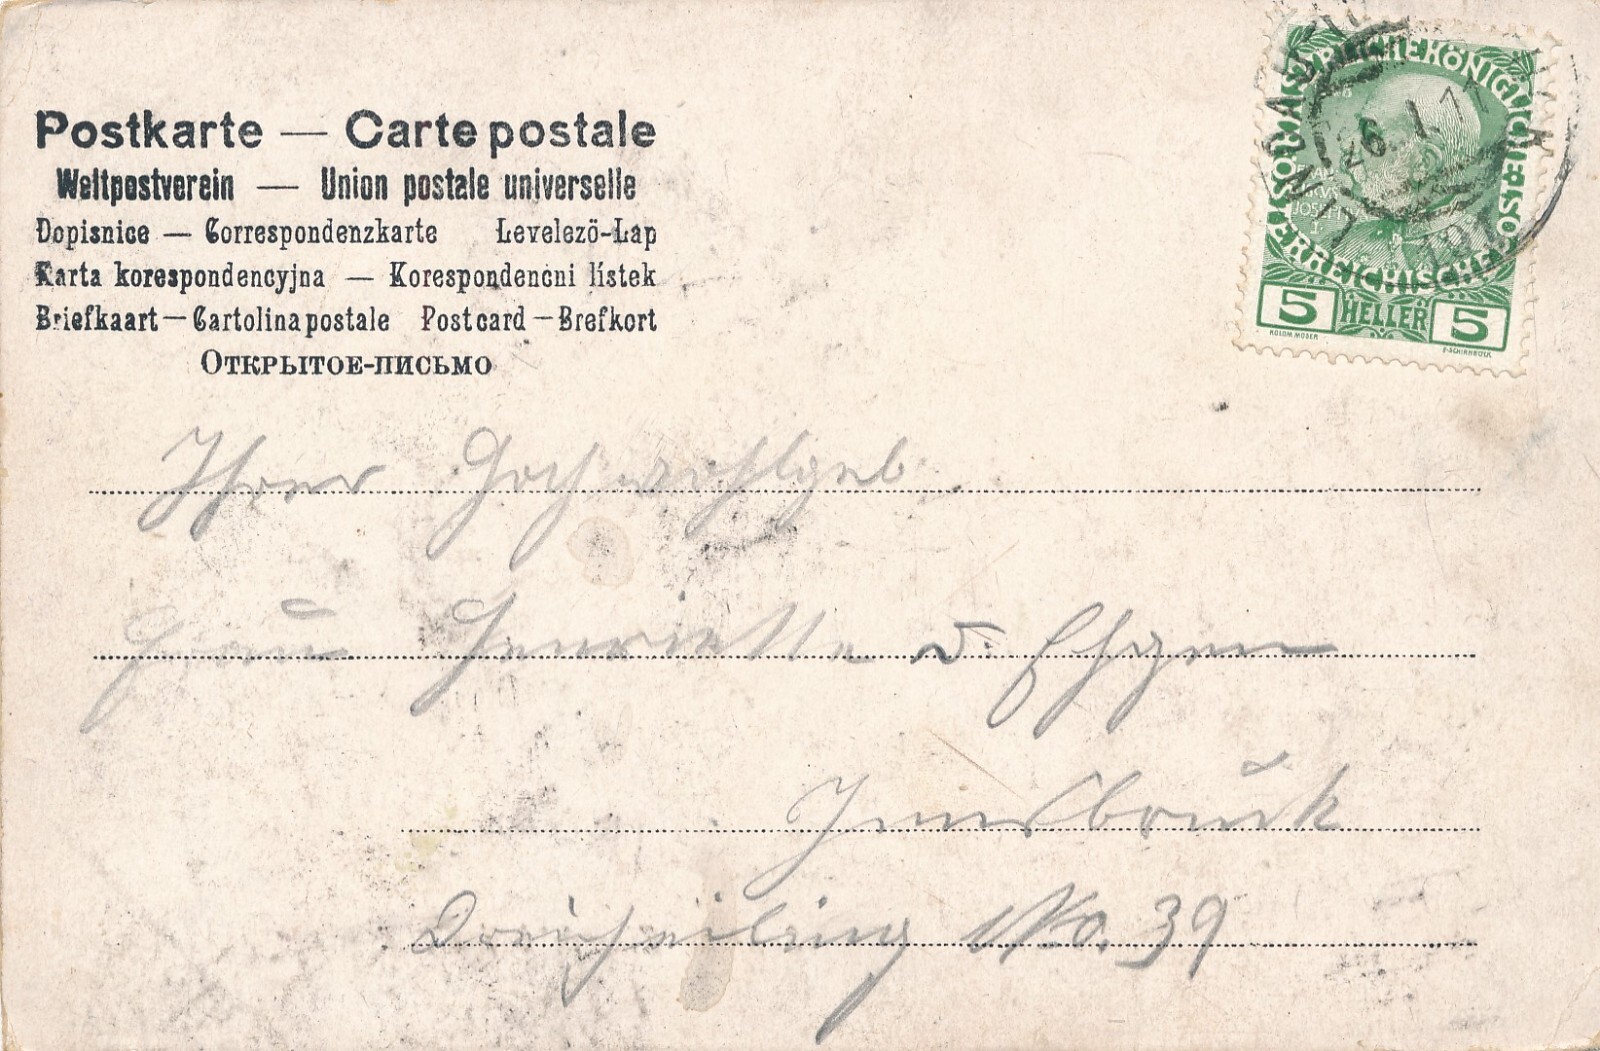 Postkarte — Carte postale
Weltpostverein — Union postale universelle
Dopisnice — Correspondenzkarte Levelezö-Lap
Karta korespondencyjna — Korespondenční lístek
Briefkaart — Cartolina postale Postcard — Brefkort
Открытое-письмо
KAISERLICHE KÖNIGLICHE ÖSTERREICHISCHE
26. I. 1
5 HELLER 5
KOLOM. MOSER F. SCHIRNBÖCK
Ihrer Hochwohlgeb
Frau Henriette v.
Innsbruck
Dreiheiling No. 39